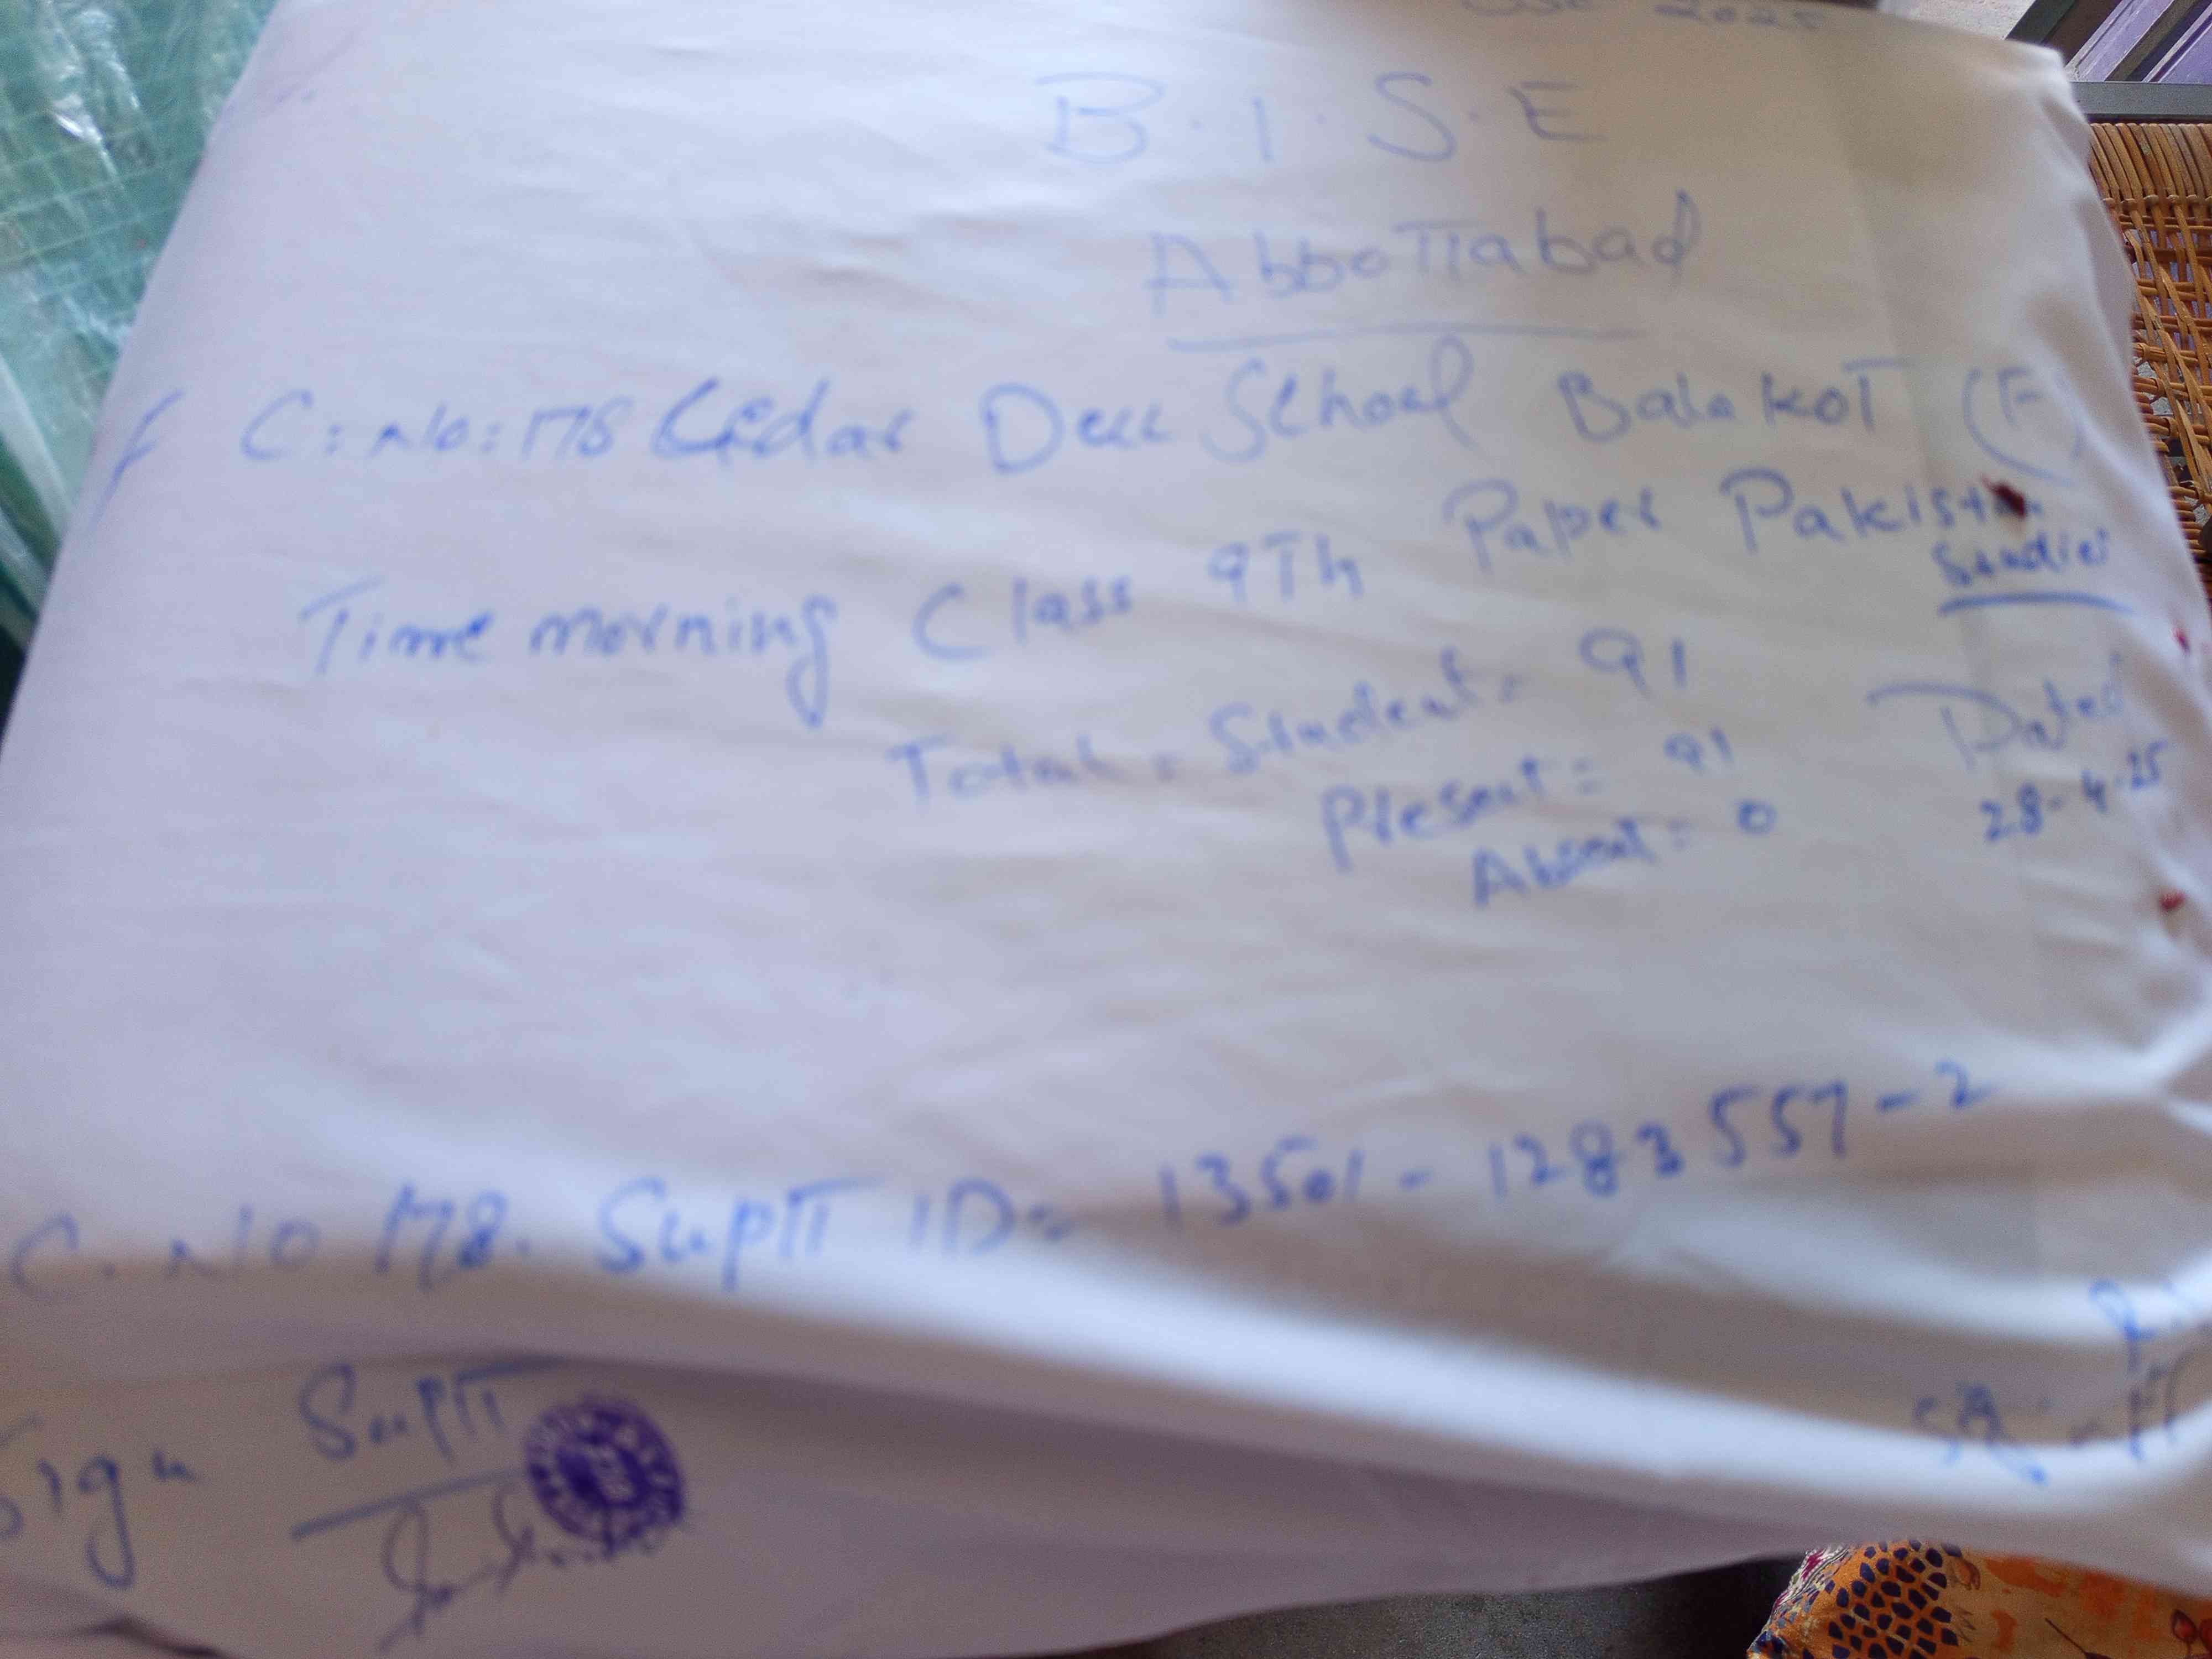 2025
B.I.S.E
Abbottabad
C:No:178 Cedar Dell School Balakot (F)
Time morning Class 9Th Paper Pakistan Studies
Total = Student = 91
Present = 91
Absent = 0
Dated
28-4-25
C.No 178. Suptt ID= 13501-1283557-2
Sign Suptt